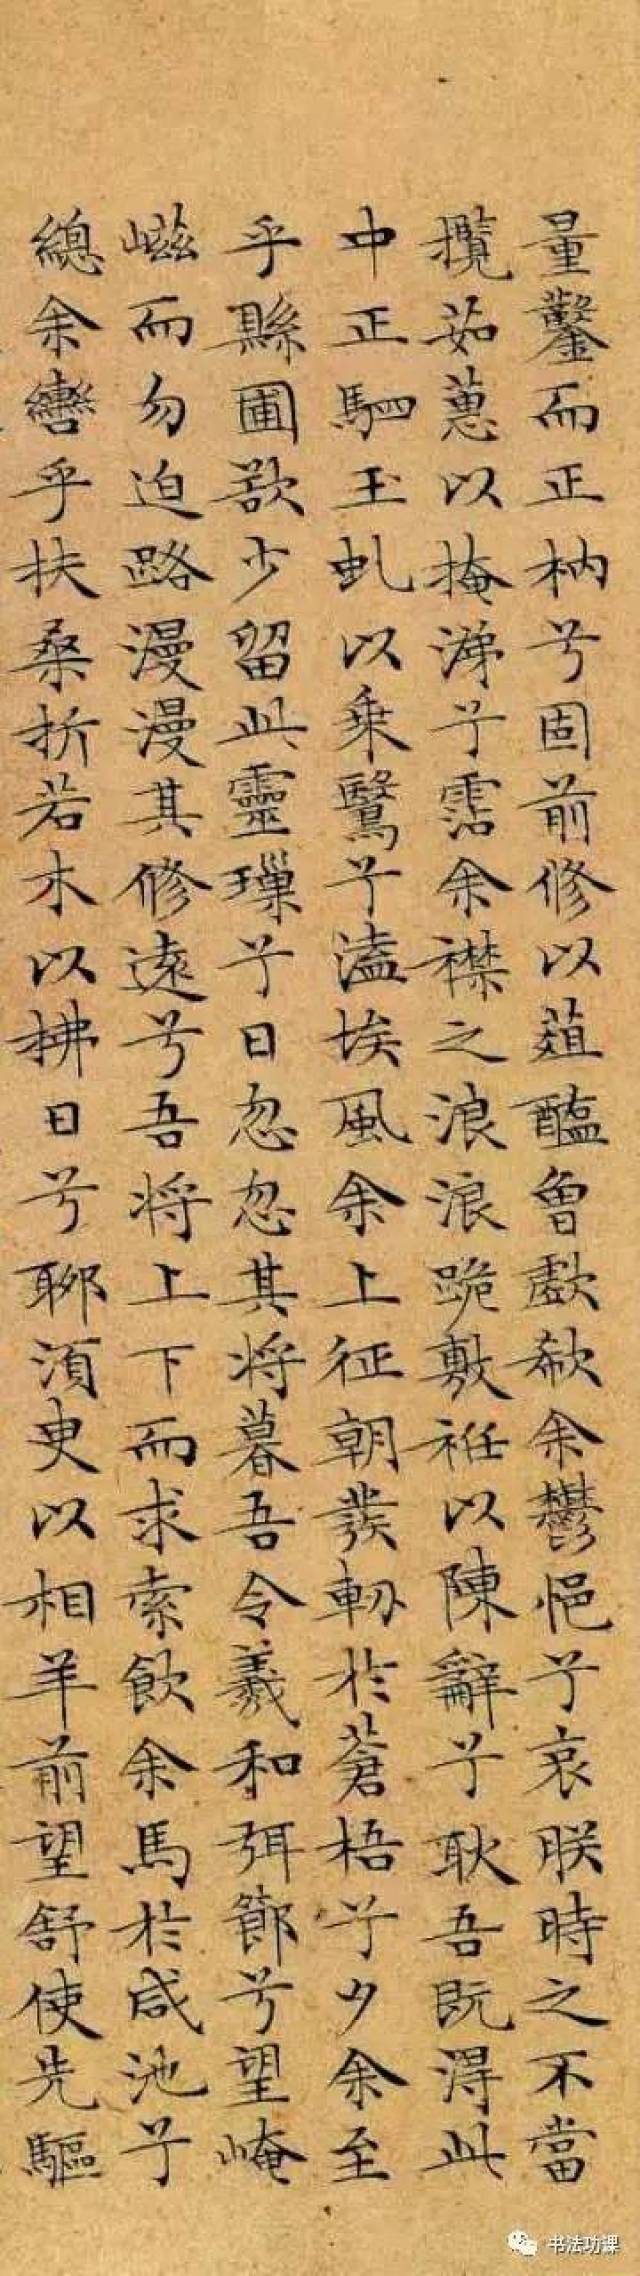 量鑿而正枘兮固前修以葅醢曾歔欷余鬱悒兮哀朕時之不當
攬茹蕙以掩涕兮霑余襟之浪浪跪敷衽以陳辭兮耿吾既淂此
中正駟玉虬以乗鷖兮溘埃風余上征朝發軔於蒼梧兮夕余至
乎縣圃欲少留此靈瑣兮日忽忽其将暮吾令羲和弭節兮望崦
嵫而勿迫路漫漫其修遠兮吾将上下而求索飲余馬於咸池兮
總余轡乎扶桑折若木以拂日兮聊湏臾以相羊前望舒使先驅
书法功课